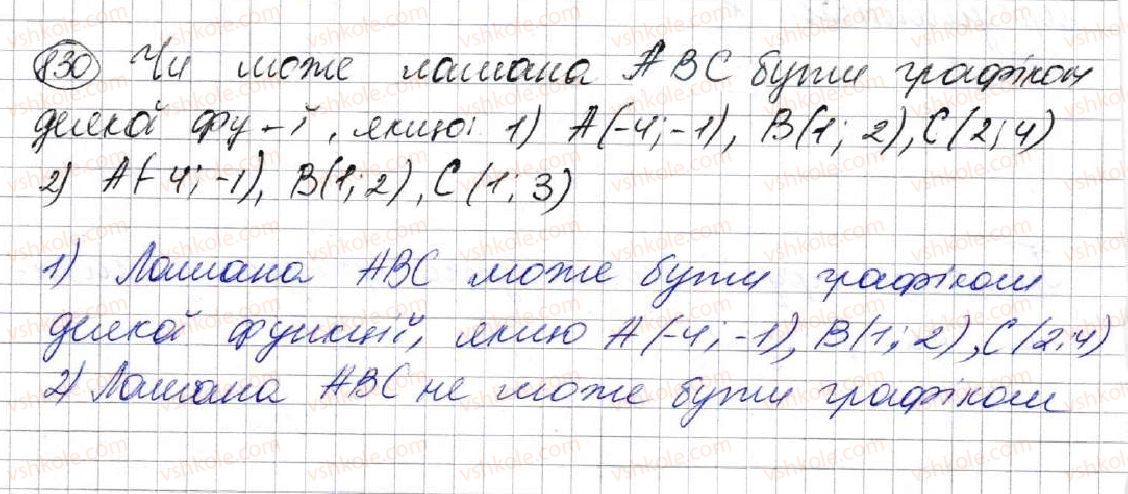 830 Чи може ламана ABC бути графіком
деякої фу-ї, якщо: 1) A(-4; -1), B(1; 2), C(2; 4)
2) A(-4; -1), B(1; 2), C(1; 3)
1) Ламана ABC може бути графіком
деякої функції, якщо A(-4; -1), B(1; 2), C(2; 4)
2) Ламана ABC не може бути графіком